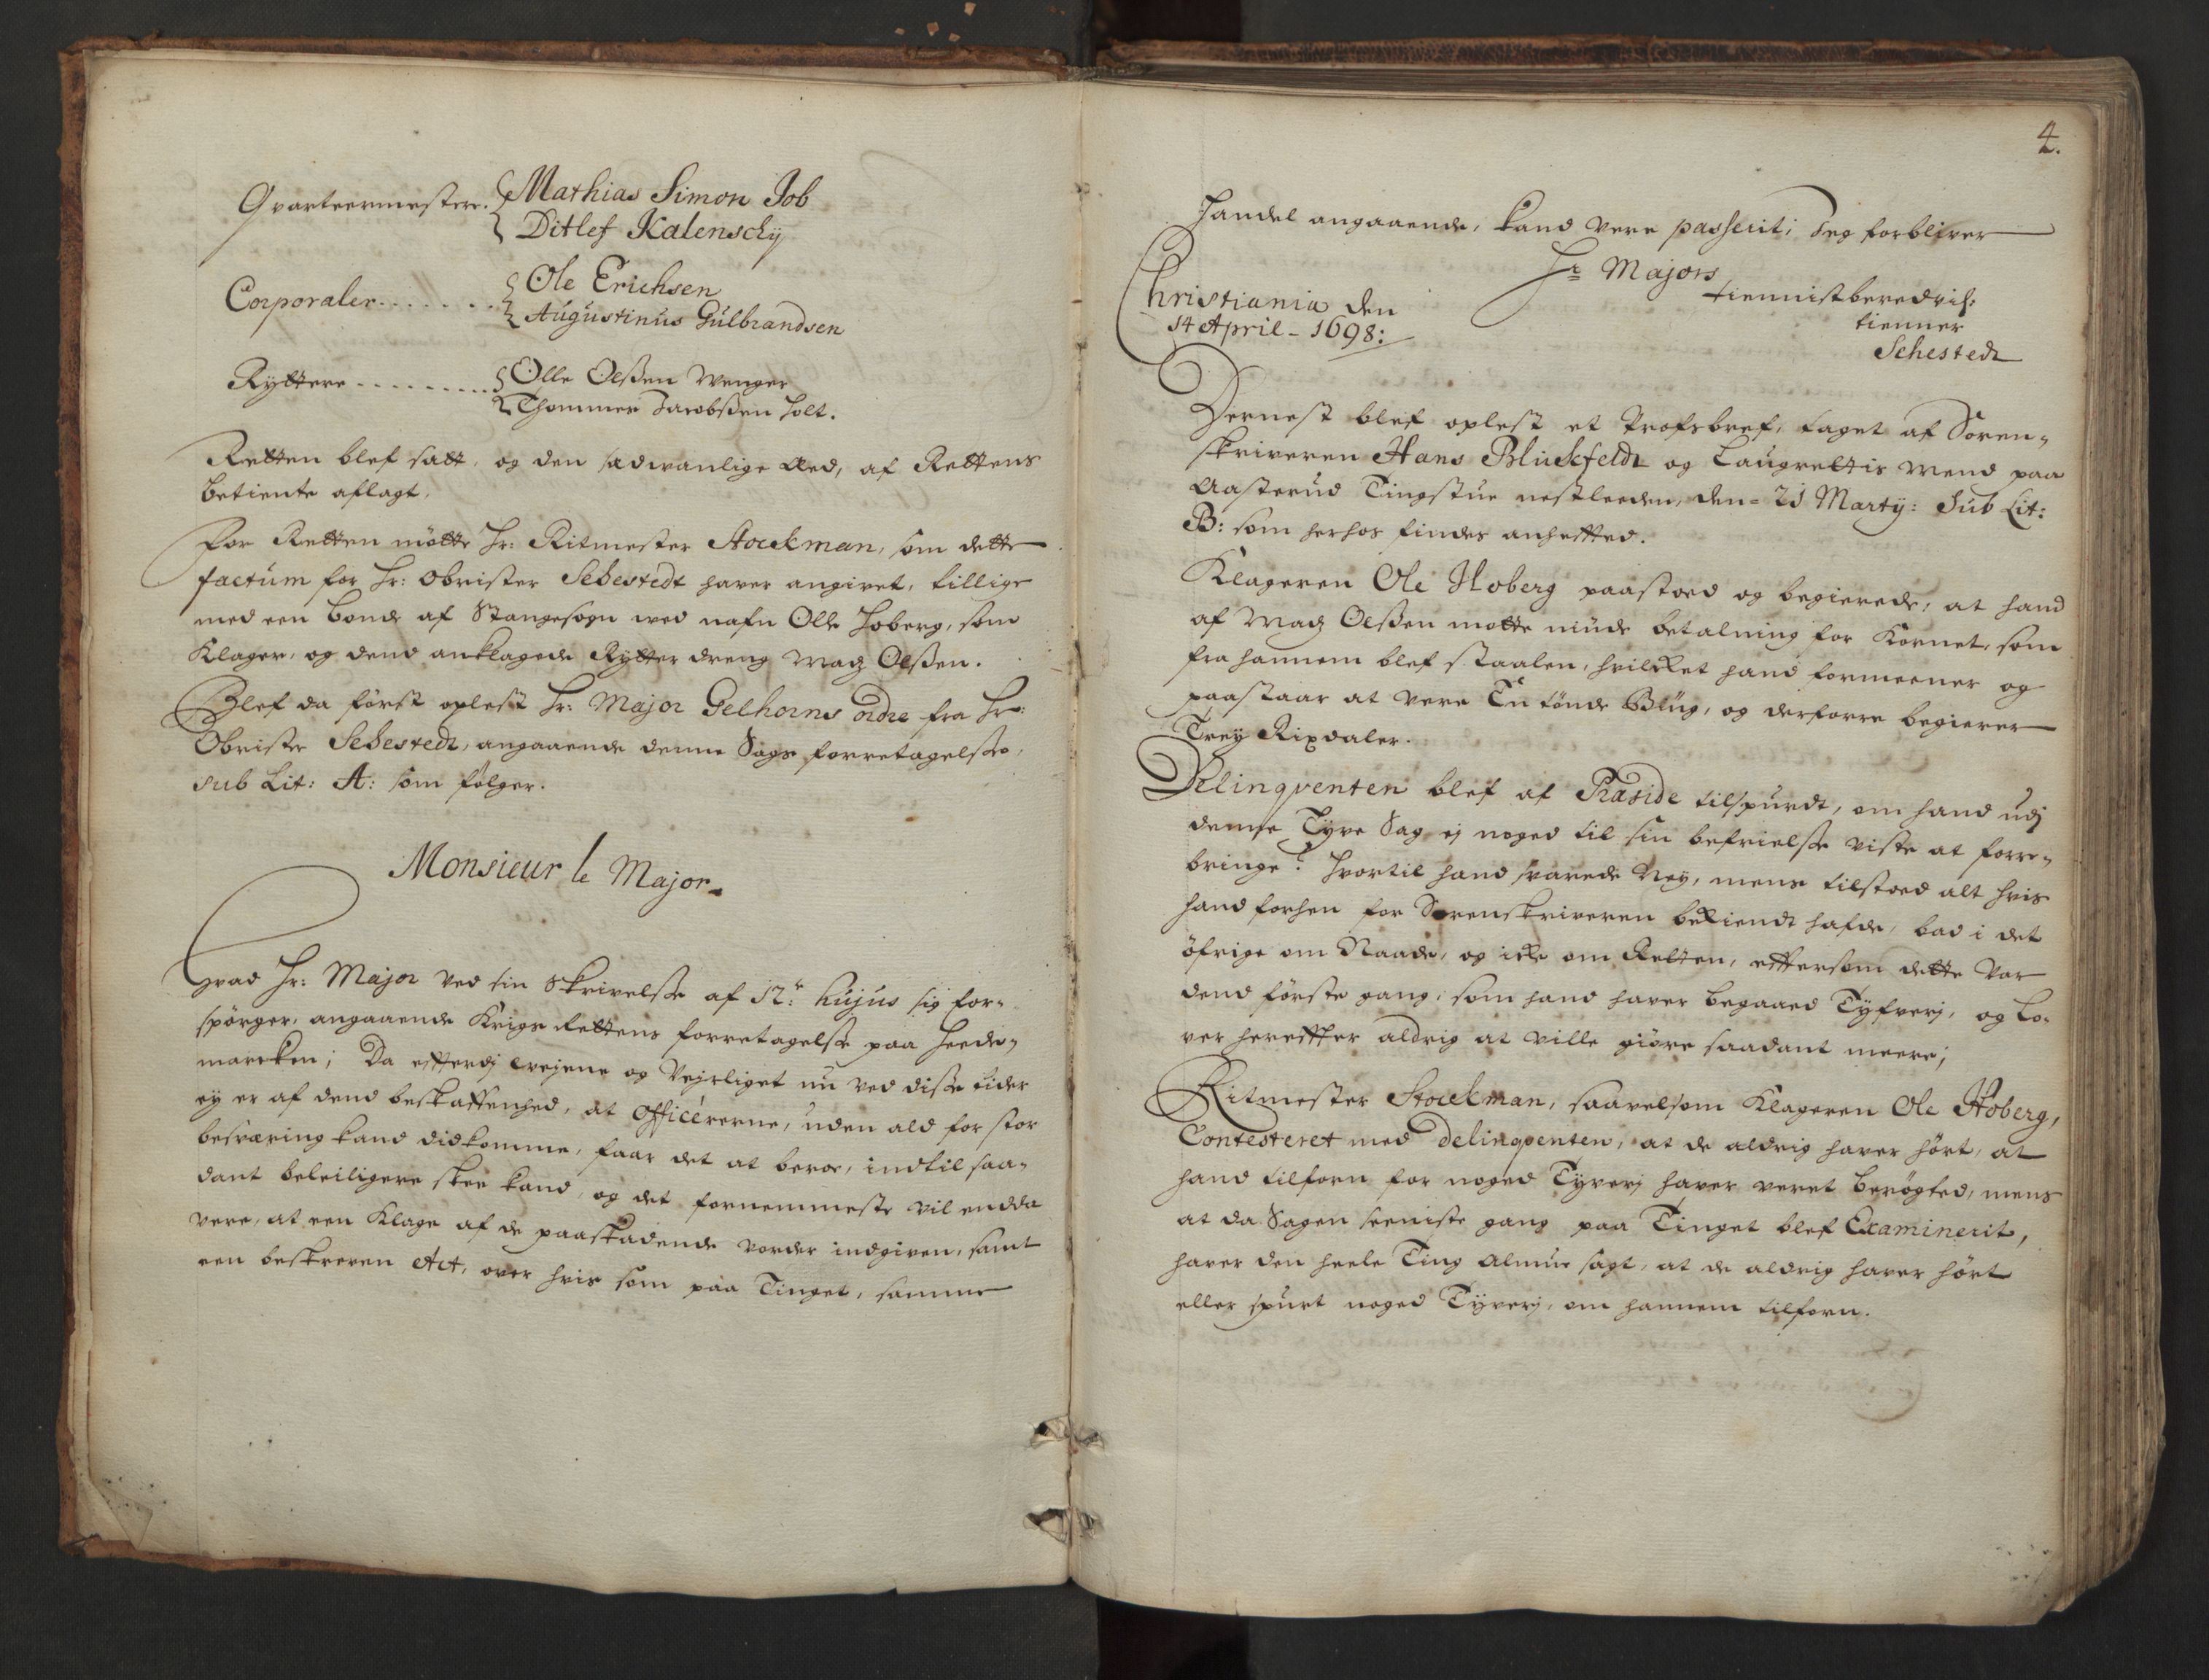 Qvarteermestere. Mathias Simon Job
Ditlef Kalenschÿ
Corporaler....... Ole Erichsen
Augustinus Gulbrandsen
Ryttere ......... Olle Olßen Wenger
Thommes Jacobßen Holt.
Retten blef satt, og den sædvanlige Æed, af Rettens
betiente aflagt.
For Retten mötte Hr: Ritmester Stockman, som dette
factum for Hr: Obrister Sehestedt haver angivet, tillige
med een bonde af Stangesogn ved nafn Olle Hoberg, som
Klager, og dend anklagede Rytter dreng Madz Olßen.
Blef da först oplest Hr: Major Gelhorns ordre fra Hr:
Obrister Sehestedt, angaaende denne Sags forretagelsse,
sub Lit: A: som fölger.
Monsieur le Major
Hvad Hr: Major ved sin Skrivelsse af 12.te hujus sig for-
spörger, angaaende Krigs Rettens forretagelsse paa Heede-
marcken; Da efterdj vejene og Vejrliget nu ved disse tider
ey er af dend beskaffenhed, at Officererne, uden ald for stor
besværing kand didkomme, faar det at beroe, indtil saa-
dant beleiligere skee kand, og det fornemmeste vil endda
vere, at een Klage af de paaskadende vorder indgiven, samt
een beskreven Act, over hvis som paa Tinget, samme
4.
Handel angaaende, kand vere passerit; Jeg forbliver
Hr Majors
tiennistberedvil:
tienner
Sehestedt
Christiania den
14 April - 1698:
Dernest blef oplest et Profsbref, taget af Soren-
skriveren Hans Blickfeldt og Laugrettis Mend paa
Aasterud Tingstue nestleeden, den 21 Martÿ: Sub Lit:
B: som herhos findes anheftted.
Klageren Ole Hoberg paastoed og begierede, at hand
af Madz Olßen motte niude betalning for Kornet, som
fra hannem blef staalen, hvilcket hand formeener og
paastaar at vere En tönde Biug, og derforre begierer
Trey Rixdaler.
Delinqventen blef af Præside tilspurdt, om hand udj
denne Tyve Sag ej noged til sin befrielsse viste at forre-
bringe? Hvortil hand svarede Ney, mens tilstoed alt hvis
hand forhen for Sorenskriveren bekiendt hafde, bad i det
öfrige om Naade, og icke om Retten, eftersom dette Var
dend förste gang, som hand haver begaaed Tyfverj, og lo-
ver hereffter aldrig at ville giöre saadant meere;
Ritmester Stockman, saavelsom Klageren Ole Hoberg,
Contesteret med Delinqventen, at de aldrig haver hört, at
hand tilforn for noged Tyverj haver veret berögted, mens
at da Sagen seeniste gang paa Tinget blef Examinerit,
haver den heele Ting Almue sagt, at de aldrig haver hört
eller spurt noged Tyverj, om hannem tilforn.